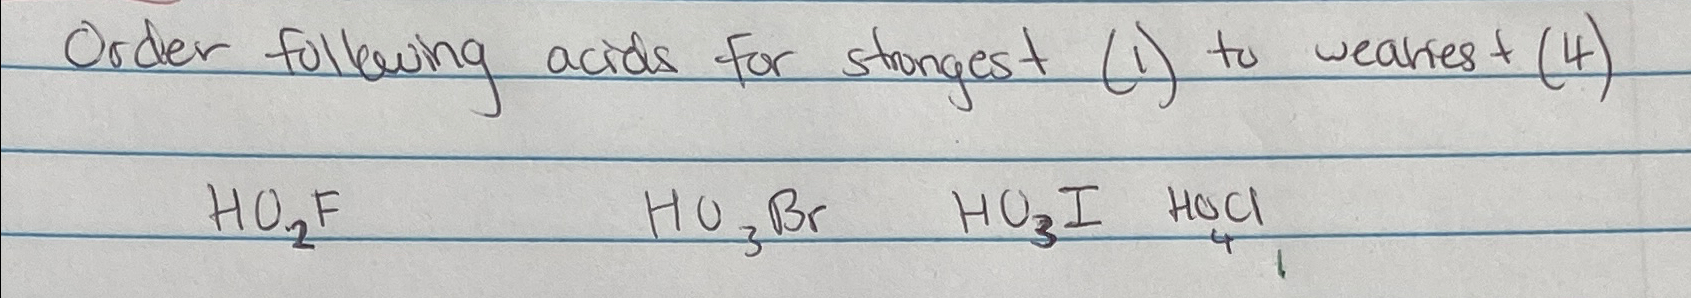 Order following acids for strongest (1) to weakest (4)
HO₂F HO₃Br HO₃I HO₄Cl
1